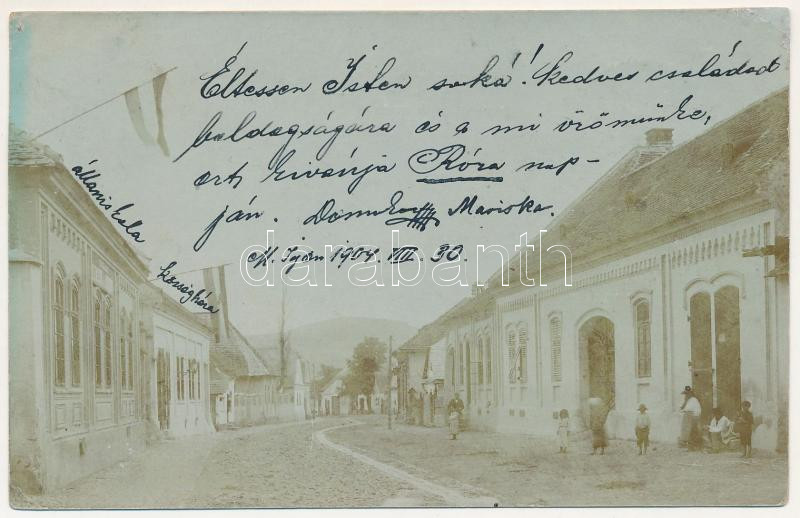 Éltessen Isten soká! kedves családod
boldogságára és a mi örömünkre,
ezt kivánja Róza nap-
ján. Mariska.
M. Igen 1904. VIII. 30.
állami iskola
községháza
darabanth